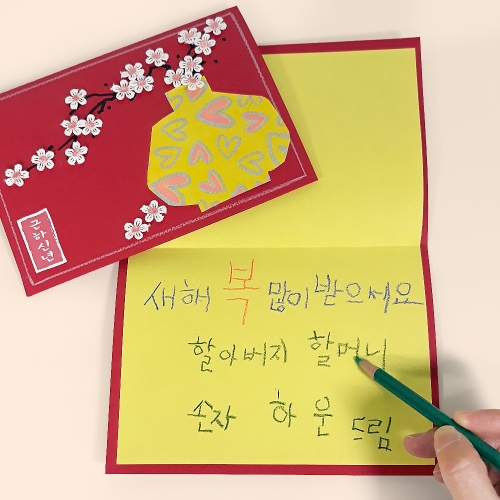 근하신년
새해 복 많이 받으세요
할아버지 할머니
손자 하 운 드림